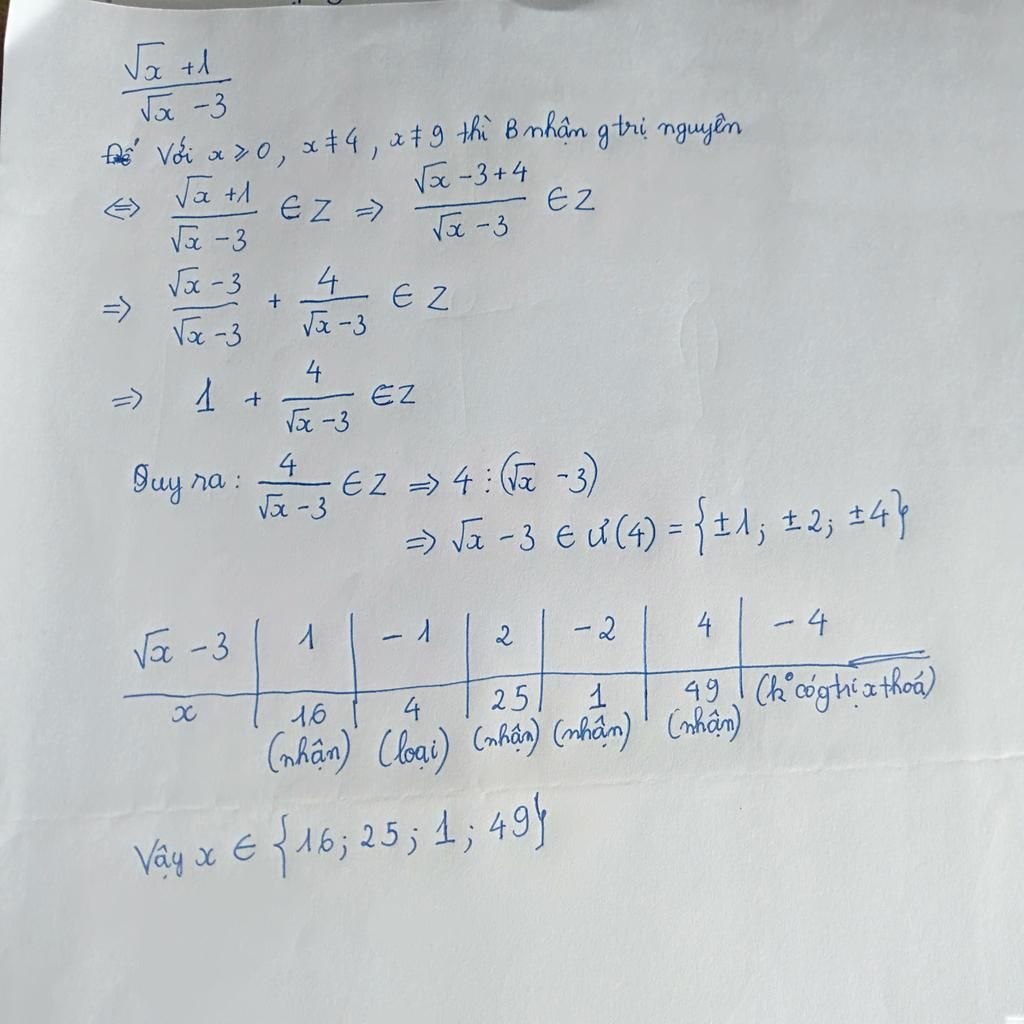 (√x + 1)/(√x - 3)
Với x ⩾ 0, x ≠ 4, x ≠ 9 thì B nhận gtrị nguyên
⇔ (√x + 1)/(√x - 3) ∈ Z ⇒ (√x - 3 + 4)/(√x - 3) ∈ Z
⇒ (√x - 3)/(√x - 3) + 4/(√x - 3) ∈ Z
⇒ 1 + 4/(√x - 3) ∈ Z
Suy ra: 4/(√x - 3) ∈ Z ⇒ 4 ⋮ (√x - 3)
⇒ √x - 3 ∈ Ư(4) = {±1; ±2; ±4}
√x - 3 | 1 | - 1 | 2 | - 2 | 4 | - 4
x | 16 (nhận) | 4 (loại) | 25 (nhận) | 1 (nhận) | 49 (nhận) | (k° có gtrị x thoả)
Vậy x ∈ {16; 25; 1; 49}